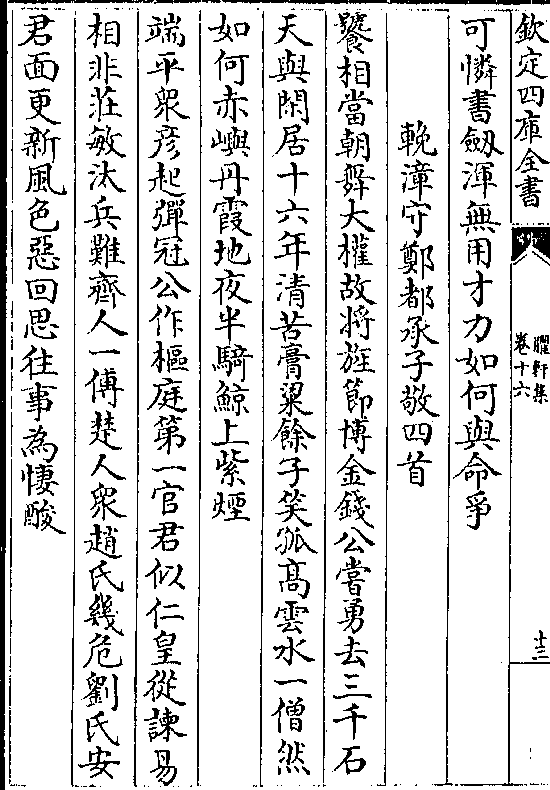 欽定四庫全書
臞軒集
卷十六
十三
可憐書劔渾無用才力如何與命爭
輓漳守鄭都承子敬四首
饕相當朝舞大權故將旌節博金錢公嘗勇去三千石
天與閑居十六年清苦膏粱餘子笑孤高雲水一僧然
如何赤嶼丹霞地夜半騎鯨上紫煙
端平衆彦起彈冠公作樞庭第一官君似仁皇從諫易
相非莊敏汰兵難齊人一傅楚人衆趙氏幾危劉氏安
君面更新風色惡回思往事為悽酸